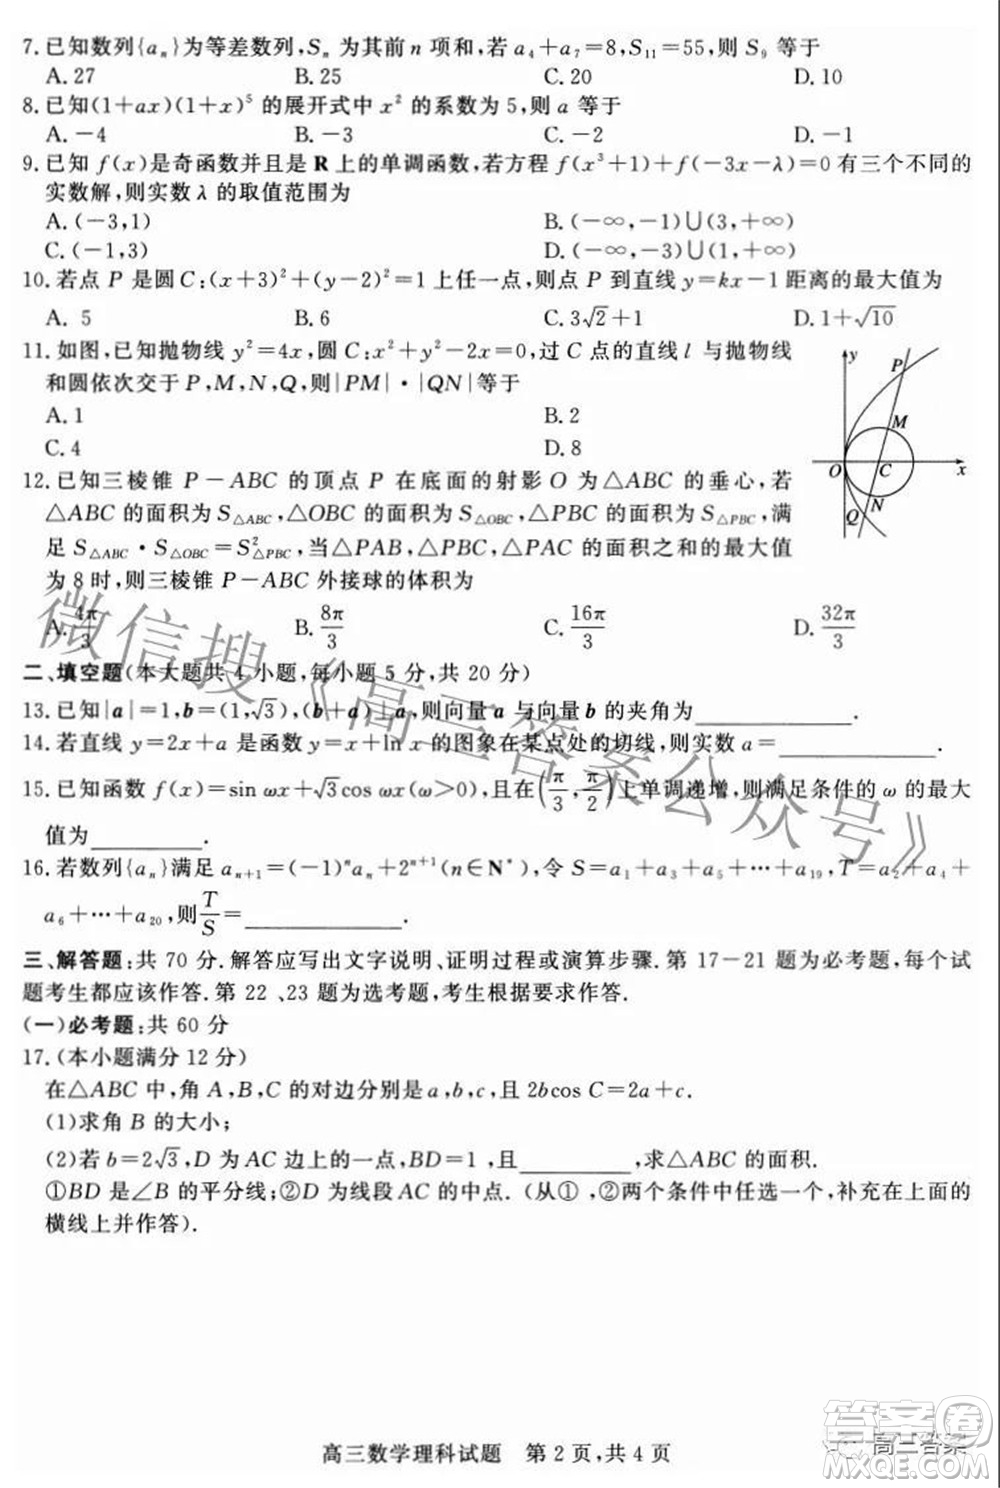 7.已知数列{aₙ}为等差数列,Sₙ 为其前 n 项和,若 a₄+a₇=8,S₁₁=55,则 S₉ 等于
A.27 B.25 C.20 D.10
8.已知(1+ax)(1+x)⁵ 的展开式中 x² 的系数为 5,则 a 等于
A.-4 B.-3 C.-2 D.-1
9.已知 f(x)是奇函数并且是 R 上的单调函数,若方程 f(x³+1)+f(-3x-λ)=0 有三个不同的
实数解,则实数 λ 的取值范围为
A.(-3,1) B.(-∞,-1)∪(3,+∞)
C.(-1,3) D.(-∞,-3)∪(1,+∞)
10.若点 P 是圆 C:(x+3)²+(y-2)²=1 上任一点,则点 P 到直线 y=kx-1 距离的最大值为
A. 5 B.6 C.3√2+1 D.1+√10
11.如图,已知抛物线 y²=4x,圆 C:x²+y²-2x=0,过 C 点的直线 l 与抛物线
和圆依次交于 P,M,N,Q,则|PM|·|QN|等于
A.1 B.2
C.4 D.8
y
P
M
O C x
N
Q
12.已知三棱锥 P-ABC 的顶点 P 在底面的射影 O 为△ABC 的垂心,若
△ABC 的面积为 S△ABC,△OBC 的面积为 S△OBC,△PBC 的面积为 S△PBC,满
足 S△ABC·S△OBC=S²△PBC,当△PAB,△PBC,△PAC 的面积之和的最大值
为 8 时,则三棱锥 P-ABC 外接球的体积为
A.4π/3 B.8π/3 C.16π/3 D.32π/3
二、填空题(本大题共 4 小题,每小题 5 分,共 20 分)
13.已知|a|=1,b=(1,√3),(b+a)⊥a,则向量 a 与向量 b 的夹角为________.
14.若直线 y=2x+a 是函数 y=x+ln x 的图象在某点处的切线,则实数 a=________.
15.已知函数 f(x)=sin ωx+√3cos ωx(ω>0),且在(π/3,π/2)上单调递增,则满足条件的 ω 的最大
值为________.
16.若数列{aₙ}满足 aₙ₊₁=(-1)ⁿaₙ+2ⁿ⁺¹(n∈N*),令 S=a₁+a₃+a₅+⋯+a₁₉,T=a₂+a₄+
a₆+⋯+a₂₀,则T/S=________.
三、解答题:共 70 分.解答应写出文字说明、证明过程或演算步骤.第 17-21 题为必考题,每个试
题考生都应该作答.第 22 、23 题为选考题,考生根据要求作答.
(一)必考题:共 60 分
17.(本小题满分 12 分)
在△ABC 中,角 A,B,C 的对边分别是 a,b,c,且 2bcos C=2a+c.
(1)求角 B 的大小;
(2)若 b=2√3,D 为 AC 边上的一点,BD=1 ,且________,求△ABC 的面积.
①BD 是∠B 的平分线;②D 为线段 AC 的中点.(从① ,②两个条件中任选一个,补充在上面的
横线上并作答).
微信搜《高三答案公众号》
高三数学理科试题 第 2 页,共 4 页
高三答案
答案圈
MXQE.COM